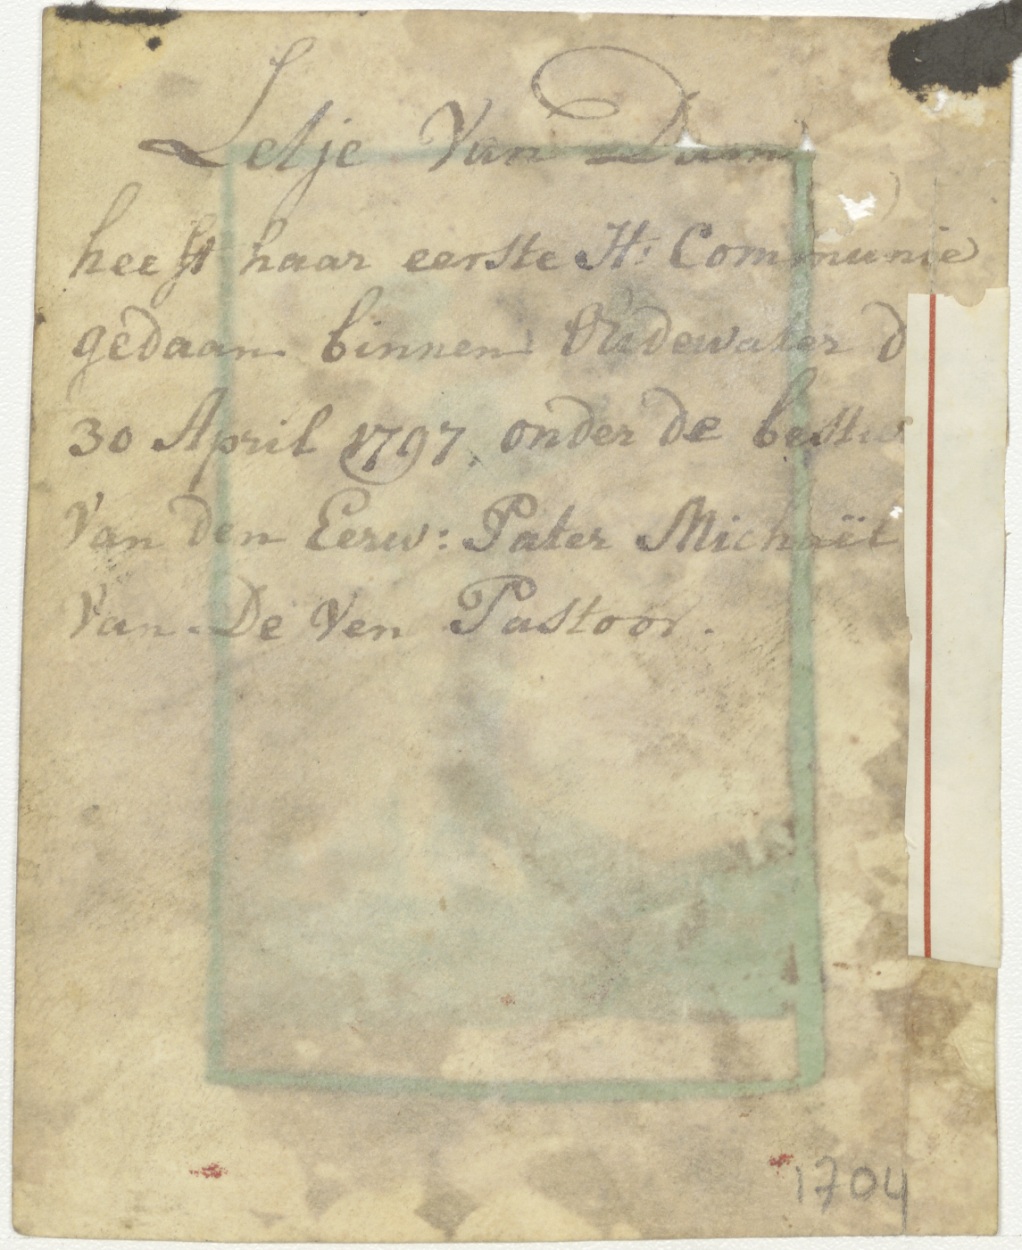 Letje Van Dam
heeft haar eerste H: Communie
gedaan binnen Oudewater d
30 April 1797, onder de bestu
Van den Eerw: Pater Michaël
Van De Ven Pastoor.
1704